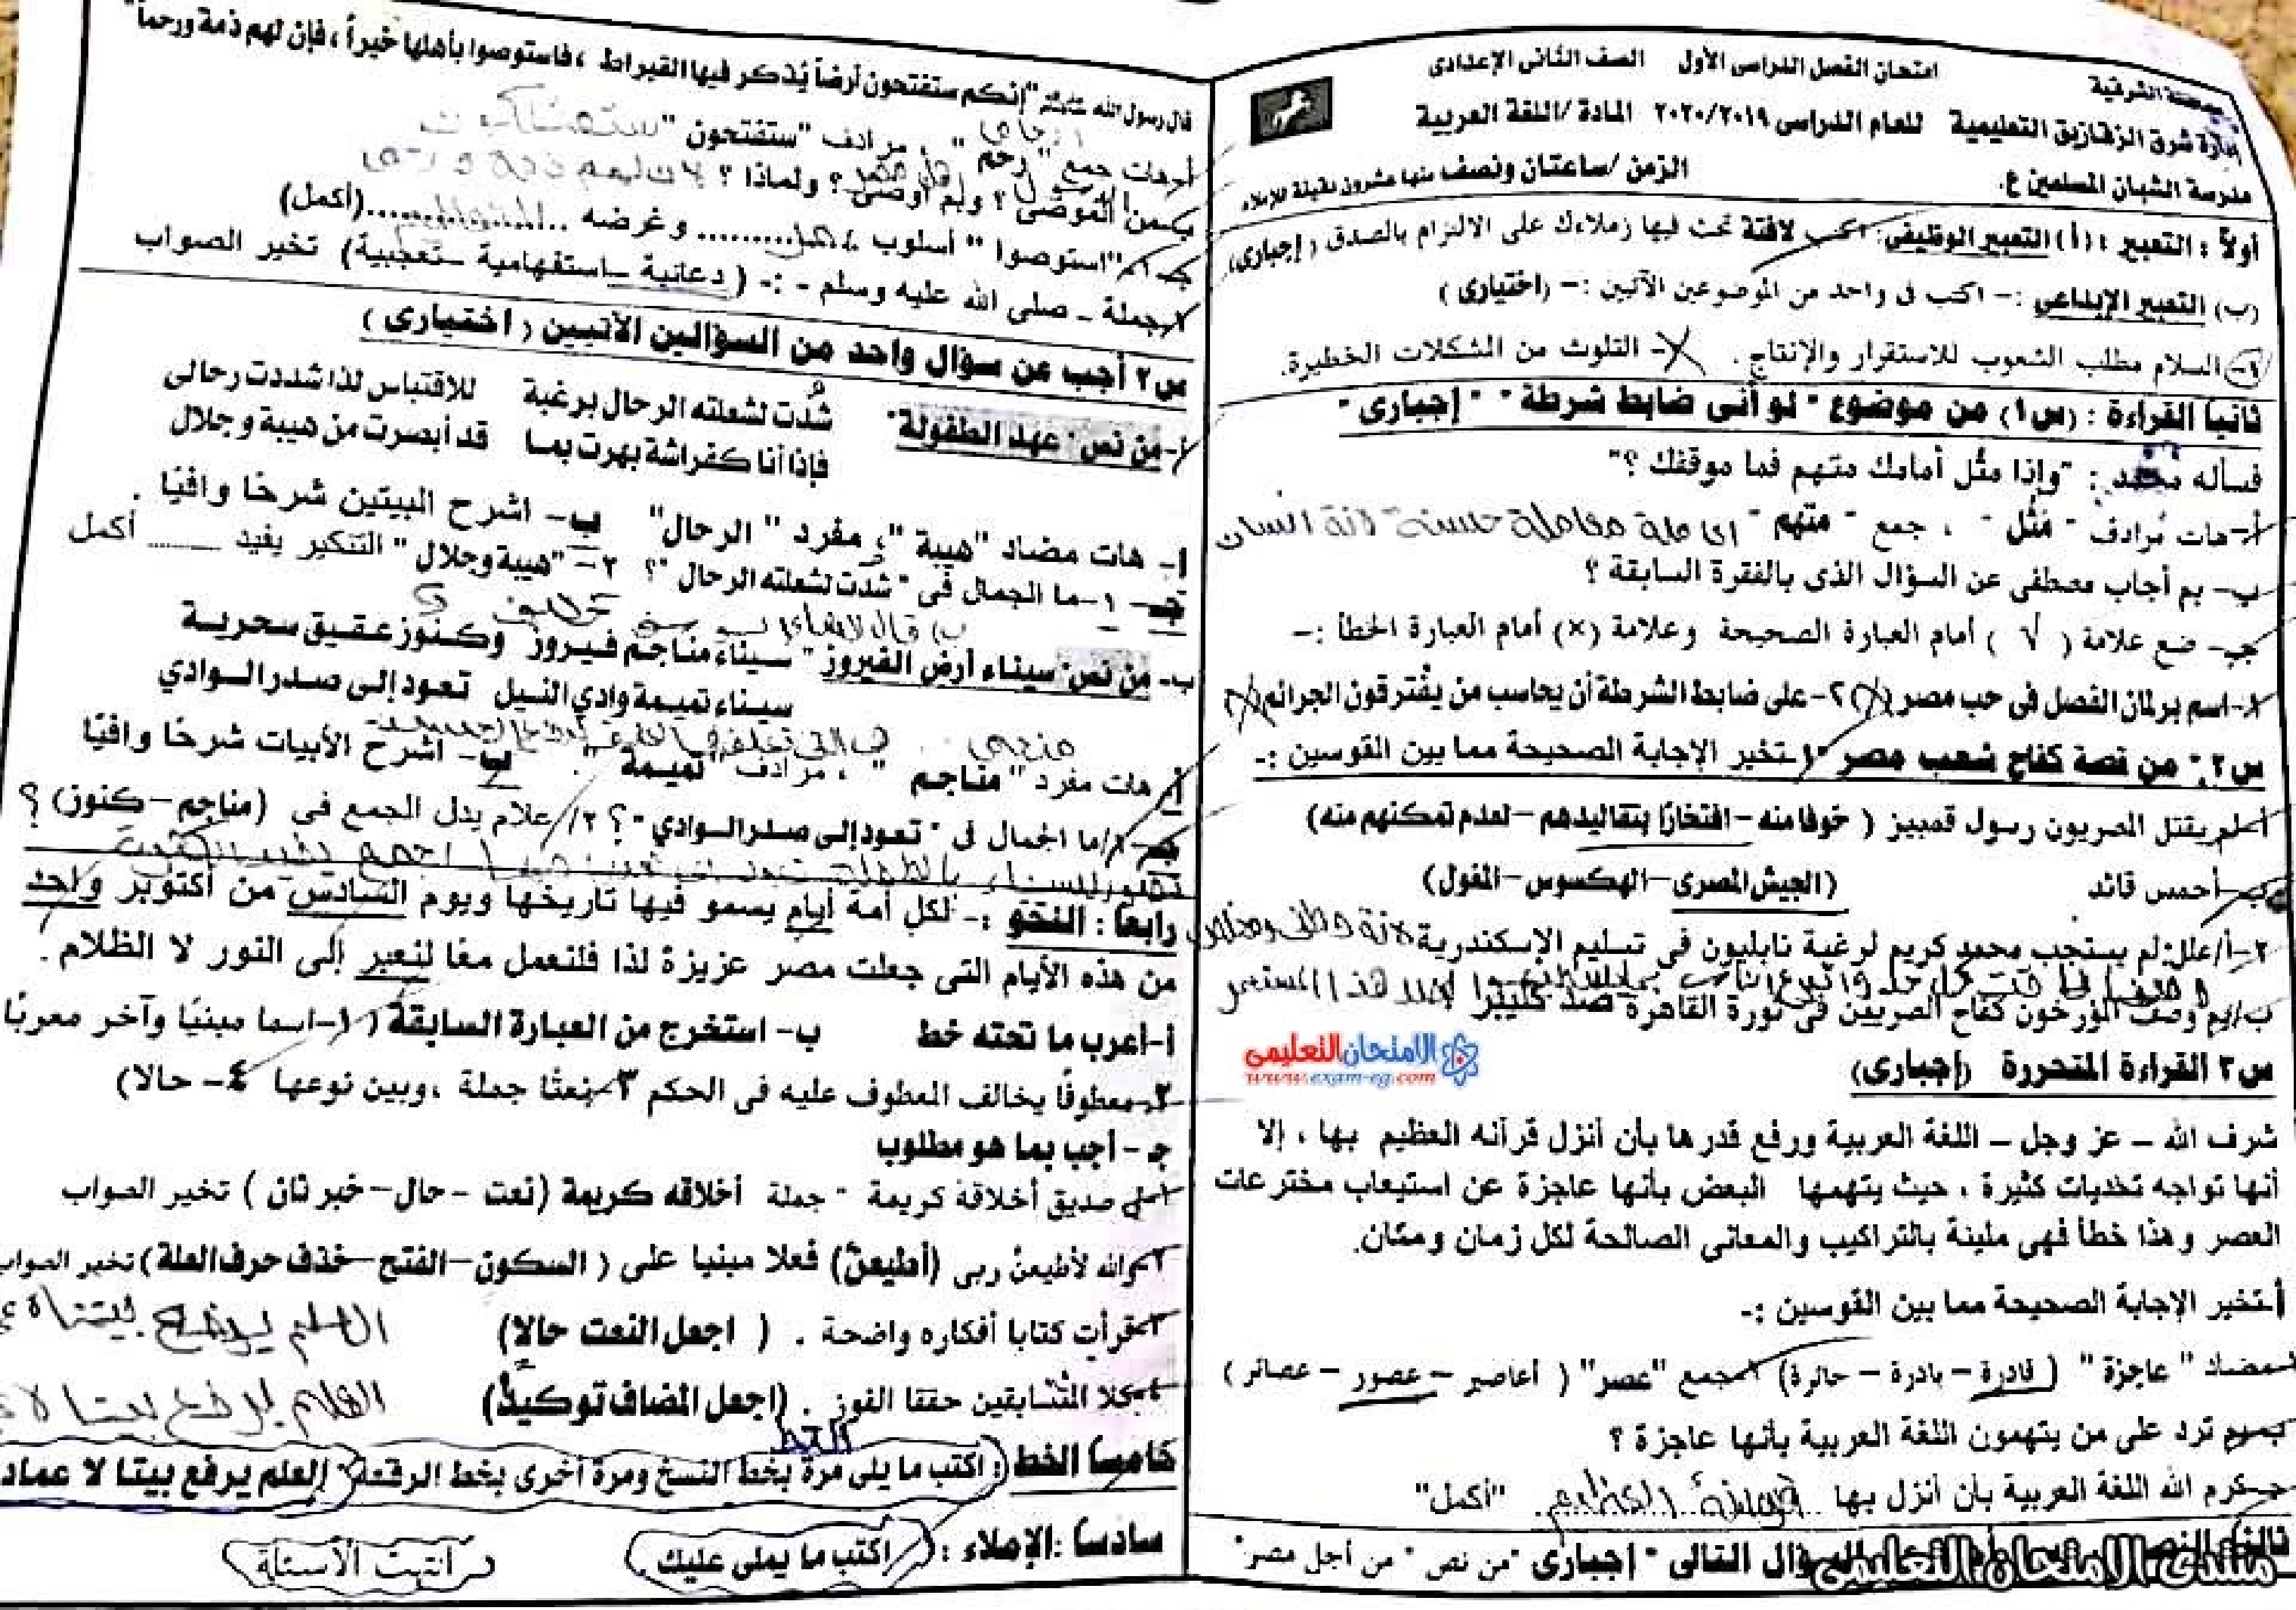 امتحان الفصل الدراسى الأول الصف الثانى الإعدادى
الشرقية
إدارة شرق الزقازيق التعليمية للعام الدراسى ٢٠١٩/٢٠٢٠ المادة /اللغة العربية
مدرسة الشبان المسلمين ع. الزمن /ساعتان ونصف منها عشرون دقيقة للإملاء
أولاً : التعبير : (أ) التعبير الوظيفى: اكتب لافتة تحث فيها زملاءك على الالتزام بالصدق (إجبارى)
(ب) التعبير الإبداعى :- اكتب فى واحد من الموضوعين الآتيين :- (اختيارى)
١- السلام مطلب الشعوب للاستقرار والإنتاج. - التلوث من المشكلات الخطيرة.
ثانيا القراءة : (س١) من موضوع " لو أنى ضابط شرطة " " إجبارى "
فسأله محمد : "وإذا مثُل أمامك متهم فما موقفك ؟"
أ- هات مُرادف " مَثُل " ، جمع " متهم " معاملة حسنة لانة انسان
ب- بم أجاب مصطفى عن السؤال الذى بالفقرة السابقة ؟
جـ- ضع علامة ( √ ) أمام العبارة الصحيحة وعلامة (×) أمام العبارة الخطأ :-
١- اسم برلمان الفصل فى حب مصر ( ) ٢- على ضابط الشرطة أن يحاسب من يقترفون الجرائم ( )
س٢ :" من قصة كفاح شعب مصر " ١- تخير الإجابة الصحيحة مما بين القوسين :-
أ- لم يقتل المصريون رسول قمبيز ( خوفا منه - افتخارًا بتقاليدهم - لعدم تمكنهم منه)
ب- أحمس قائد (الجيش المصرى - الهكسوس - المغول)
٢- أ/علل: لم يستجب محمد كريم لرغبة نابليون فى تسليم الإسكندرية لانة
ب/ بم وصف المؤرخون كفاح المصريين فى ثورة القاهرة ضد كليبر
الامتحان التعليمى
www.exam-eg.com
س٣ القراءة المتحررة (إجبارى)
شرف الله – عز وجل – اللغة العربية ورفع قدرها بأن أنزل قرآنه العظيم بها ، إلا
أنها تواجه تحديات كثيرة ، حيث يتهمها البعض بأنها عاجزة عن استيعاب مخترعات
العصر وهذا خطأ فهى مليئة بالتراكيب والمعانى الصالحة لكل زمان ومكان.
أ- تخير الإجابة الصحيحة مما بين القوسين :-
١- مضاد " عاجزة " ( قادرة – بادرة – حائرة) ٢- جمع "عصر" ( أعاصير – عصور – عصائر )
ب- بم ترد على من يتهمون اللغة العربية بأنها عاجزة ؟
جـ- كرم الله اللغة العربية بأن أنزل بها العظيم "أكمل"
ثالثا النصوص السؤال التالى " إجبارى " من نص " من أجل مصر"
منتدى الامتحان التعليمى
قال رسول الله ﷺ "إنكم ستفتحون أرضاً يُذكر فيها القيراط ، فاستوصوا بأهلها خيراً ، فإن لهم ذمة ورحماً"
أ- هات جمع " رحم " ، مرادف "ستفتحون "
ب- من المُوصَى ؟ وبم أوصى ؟ ولماذا ؟ لان لهم ذمة و رحما
جـ- ١ "استوصوا " أسلوب ......... وغرضه ............(أكمل)
٢- جملة – صلى الله عليه وسلم – :- ( دعائية – استفهامية – تعجبية) تخير الصواب
س٢ أجب عن سؤال واحد من السؤالين الآتيين ( اختيارى )
أ- من نص " عهد الطفولة" شُدت لشعلته الرحال برغبة للاقتباس لذا شددت رحالى
فإذا أنا كفراشة بهرت بما قد أبصرت من هيبة وجلال
أ- هات مضاد "هيبة "، مفرد " الرحال" ب- اشرح البيتين شرحًا وافيًا .
جـ- ١- ما الجمال فى " شدت لشعلته الرحال "؟ ٢- "هيبة وجلال " التنكير يفيد ....... أكمل
ب- من نص "سيناء أرض الفيروز " سيناء مناجم فيروز وكنوز عقيق سحرية
سيناء تميمة وادي النيل تعود إلى صدر الوادي
أ- هات مفرد " مناجم " ، مرادف " تميمة " . ب- اشرح الأبيات شرحًا وافيًا
جـ- ١/ ما الجمال فى " تعود إلى صدر الوادي "؟ ٢/ علام يدل الجمع فى (مناجم – كنوز) ؟
رابعا : النحو :- لكل أمة أيام يسمو فيها تاريخها ويوم السادس من أكتوبر واحد
من هذه الأيام التى جعلت مصر عزيزة لذا فلنعمل معًا لنعبر إلى النور لا الظلام .
أ- أعرب ما تحته خط ب- استخرج من العبارة السابقة ( ١- اسما مبنيًا وآخر معربًا
٢- معطوفًا يخالف المعطوف عليه فى الحكم ٣- نعتًا جملة ، وبين نوعها ٤- حالا)
جـ - أجب بما هو مطلوب
١- لى صديق أخلاقة كريمة " جملة أخلاقه كريمة (نعت - حال - خبر ثان ) تخير الصواب
٢- والله لأطيعنّ ربى (أطيعنّ) فعلا مبنيا على ( السكون – الفتح – حذف حرف العلة) تخير الصواب
٣- قرأت كتابا أفكاره واضحة . ( اجعل النعت حالا)
٤- كلا المتسابقين حققا الفوز . (اجعل المضاف توكيدًا)
خامسا الخط : اكتب ما يلى مرة بخط النسخ ومرة أخرى بخط الرقعة : العلم يرفع بيتا لا عماد
سادسا :الإملاء : اكتب ما يملى عليك
انتهت الأسئلة